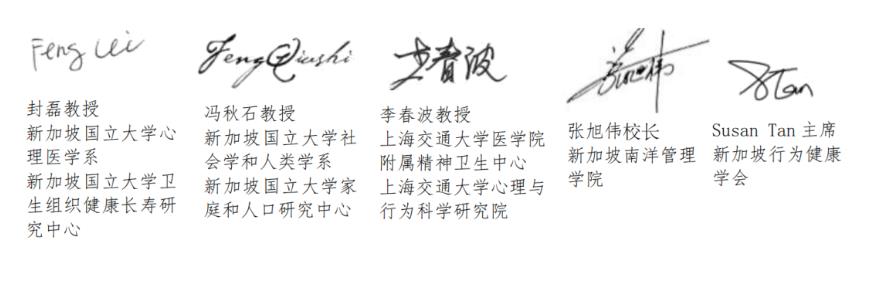 Feng Lei
封磊教授
新加坡国立大学心
理医学系
新加坡国立大学卫
生组织健康长寿研
究中心
Feng Qiushi
冯秋石教授
新加坡国立大学社
会学和人类学系
新加坡国立大学家
庭和人口研究中心
李春波
李春波教授
上海交通大学医学院
附属精神卫生中心
上海交通大学心理与
行为科学研究院
张旭伟校长
新加坡南洋管理
学院
STan
Susan Tan 主席
新加坡行为健康
学会